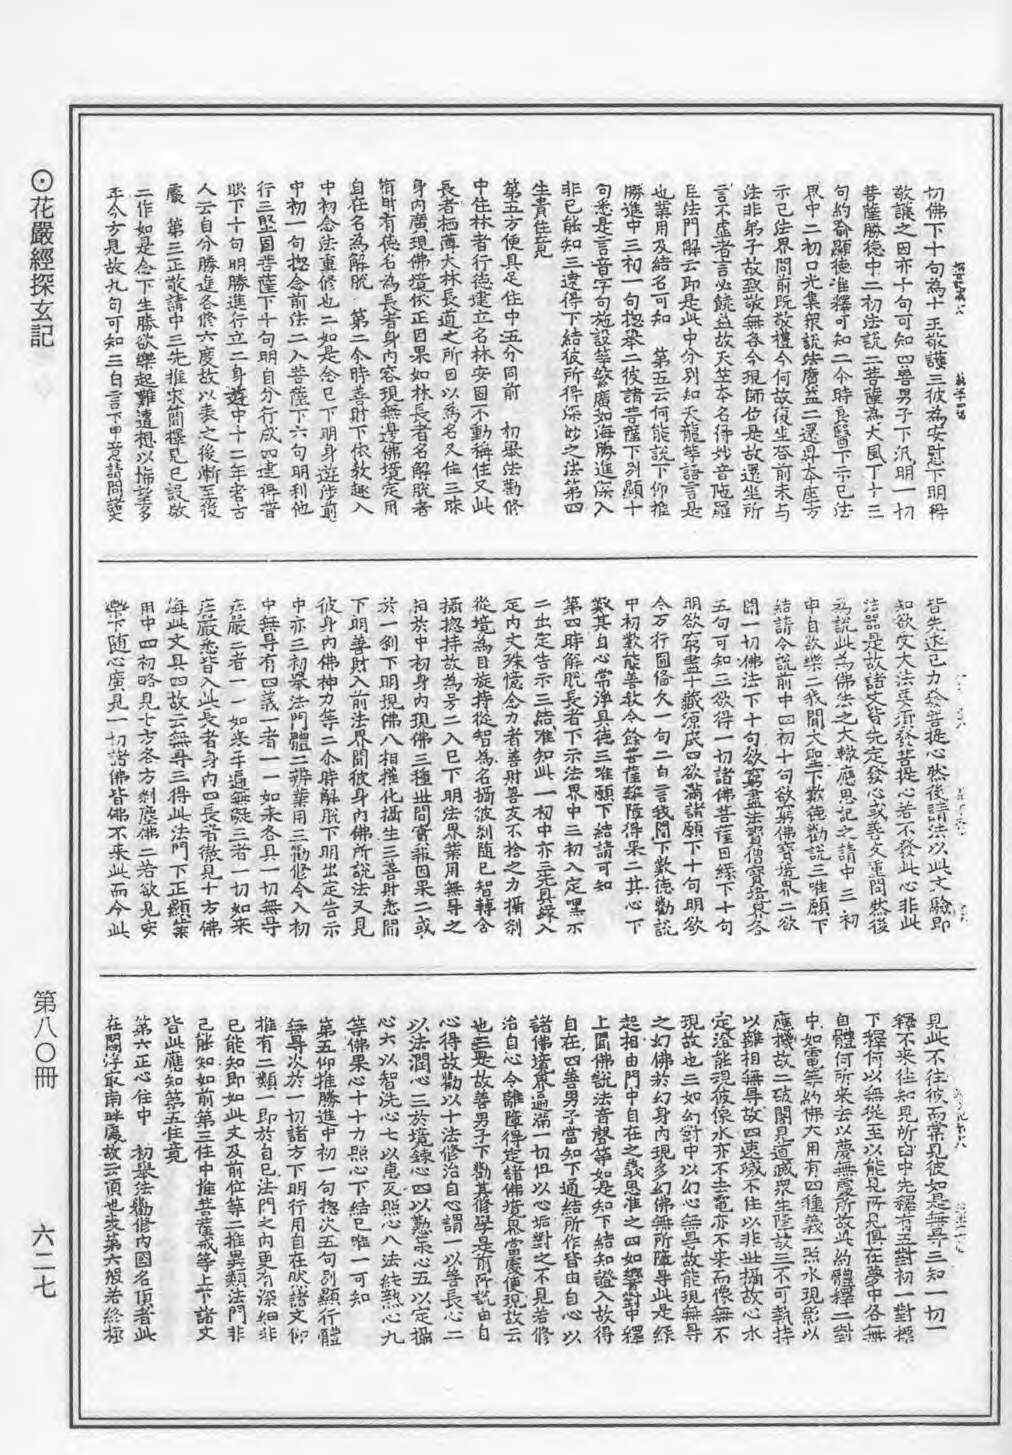 ⊙花嚴經探玄記
第八〇冊
六二七
切佛下十句為十王敬護三彼為安慰下明稱
敬讓之因亦十句可知四善男子下汎明一切
菩薩勝德中二初法說二菩薩為大風下十三
句約喻顯德准釋可知二今時良醫下示己法
界中二初口光集眾說法廣益二還昇本座方
示己法界問前既敬禮今何故復坐答前未与
法非弟子故致敬無咎今現師位是故還坐所
言不虛者言必饒益故天竺本名得妙音陀羅
尼法門解云即是此中分別知天龍等語言是
也業用及結名可知 第五云何能說下仰推
勝進中三初一句揔舉二彼諸菩薩下別顯十
句悉是言音字句施設等皆廣如海勝進深入
非已能知三逮得下結彼所得深妙之法第四
生貴住竟
第五方便具足住中五分同前 初舉法勸修
中住林者行德建立名林安固不動稱住又此
長者栖薄大林長道之所因以為名又住三昧
身內廣現佛境依正因果如林長者名解脫者
宿舊有德名為長者身內容現無邊佛境定用
自在名為解脫 第二令時善財下依教趣入
中初念法重修也二如是念已下明身遊涉前
中初一句揔念前法二入菩薩下六句明利他
行三堅固菩薩下十句明自分行成四逮得普
眼下十句明勝進行立二身遊中十二年者古
人云自分勝進各修六度故以表之後漸至彼
處 第三正敬請中三先推求簡擇見已設敬
二作如是念下生勝欲樂起難遭想以悕望多
年今方見故九句可知三白言下申意請問於文
皆失述己力發菩提心然後請法以此文驗即
知欲求大法要須發菩提心若不發此心非此
法器是故諸文皆先定發心或義文重問然後
為說此為佛法之大轍應思記之請中三初
申自欲樂二我聞大聖下歎德勸說三唯願下
結請令說前中四初十句欲窮佛寶境界二欲
聞一切佛法下十句欲窮盡法習僧寶境界各
五句可知三欲得一切諸佛菩薩因緣下十句
明欲窮盡十藏源底四欲滿諸願下十句明欲
令万行圓備久一句二白言我聞下歎德勸說
中初歎能善教令餘菩薩離障得果二其心下
歎其自心常淨具德三唯願下結請可知
第四時解脫長者下示法界中三初入定嘿示
二出定告示三結准知此一初中亦三先具錄入
定內文殊憶念力者善財善友不捨之力攝剎
從境為目旋持從智為名攝彼剎隨己智轉含
攝揔持故為号二入已下明法界業用無㝵之
相於中初身內現佛三種世間實報因果二或
於一剎下明現佛八相攝化攝生三善財悉聞
下明善財入前法界聞彼身內佛所說法又見
彼身內佛神力等二今時解脫下明出定告示
中亦三初舉法門體二辨業用三勸修令入初
中無㝵有四義一者一一如來各具一切無㝵
莊嚴二者一一如來㝵遍無礙三者一切如來
莊嚴悉皆入此長者身內四長者徹見十方佛
海此文具四故云無㝵三得此法門下正顯業
用中四初略見十方各方剎塵佛二若欲見安
樂下隨心廣見一切諸佛皆佛不來此而今此
見此不往彼而常見彼如是無㝵三知一切一
釋不來往知見所由中先釋有五對初一對標
下釋何以無從至以能見所見俱在夢中各無
自體何所來去以慶無處所故此約體釋二對
中如電等約佛大用有四種義一照水現影以
應機故二破闇見道感眾生障故三不可執持
以離相無㝵故四速滅不住以非世攝故心水
定澄能現彼像水亦不去電亦不來而像無不
現故也三如幻對中以幻心無㝵故能現無㝵
之幻佛於幻身內現多幻佛無所障㝵此是緣
起相由門中自在之義思准之四如響對中釋
上聞佛說法音聲等如是知下結知證入故得
自在四善男子當知下通結所作皆由自心以
諸佛境界遍滿一切但以心垢對之不見若修
治自心令離障得定諸佛境界當處便現故云
也三是故善男子下勸其修學是前所說由自
心得故勸以十法修治自心謂一以善長心二
以法潤心三於境鍊心四以懃求心五以定攝
心六以智洗心七以惠友照心八法純熟心九
等佛果心十十力照心下結已唯一可知
第五仰推勝進中初一句揔次五句別顯行體
無㝵次於一切諸方下明行用自在然諸文仰
推有二類一即於自己法門之內更有深細非
已能知即如此文及前位等二推異類法門非
己能知如前第三住中推菩薩戒等上下諸文
皆此應知第五住竟
第六正心住中 初舉法勸修內國名頂者此
在閻浮最南畔處故云頂也表第六般若終極